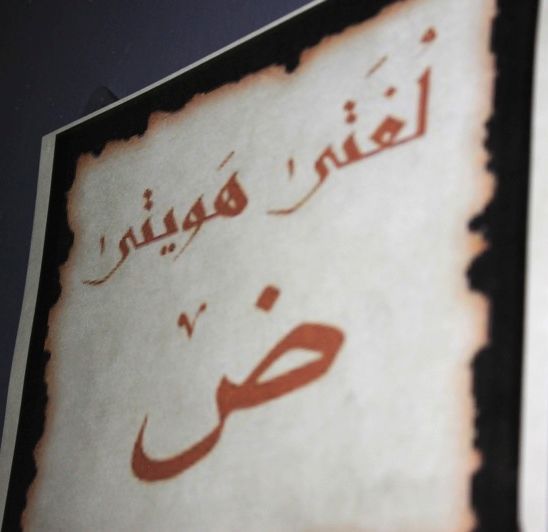 لُغَتىٰ هَويتىٰ
ض